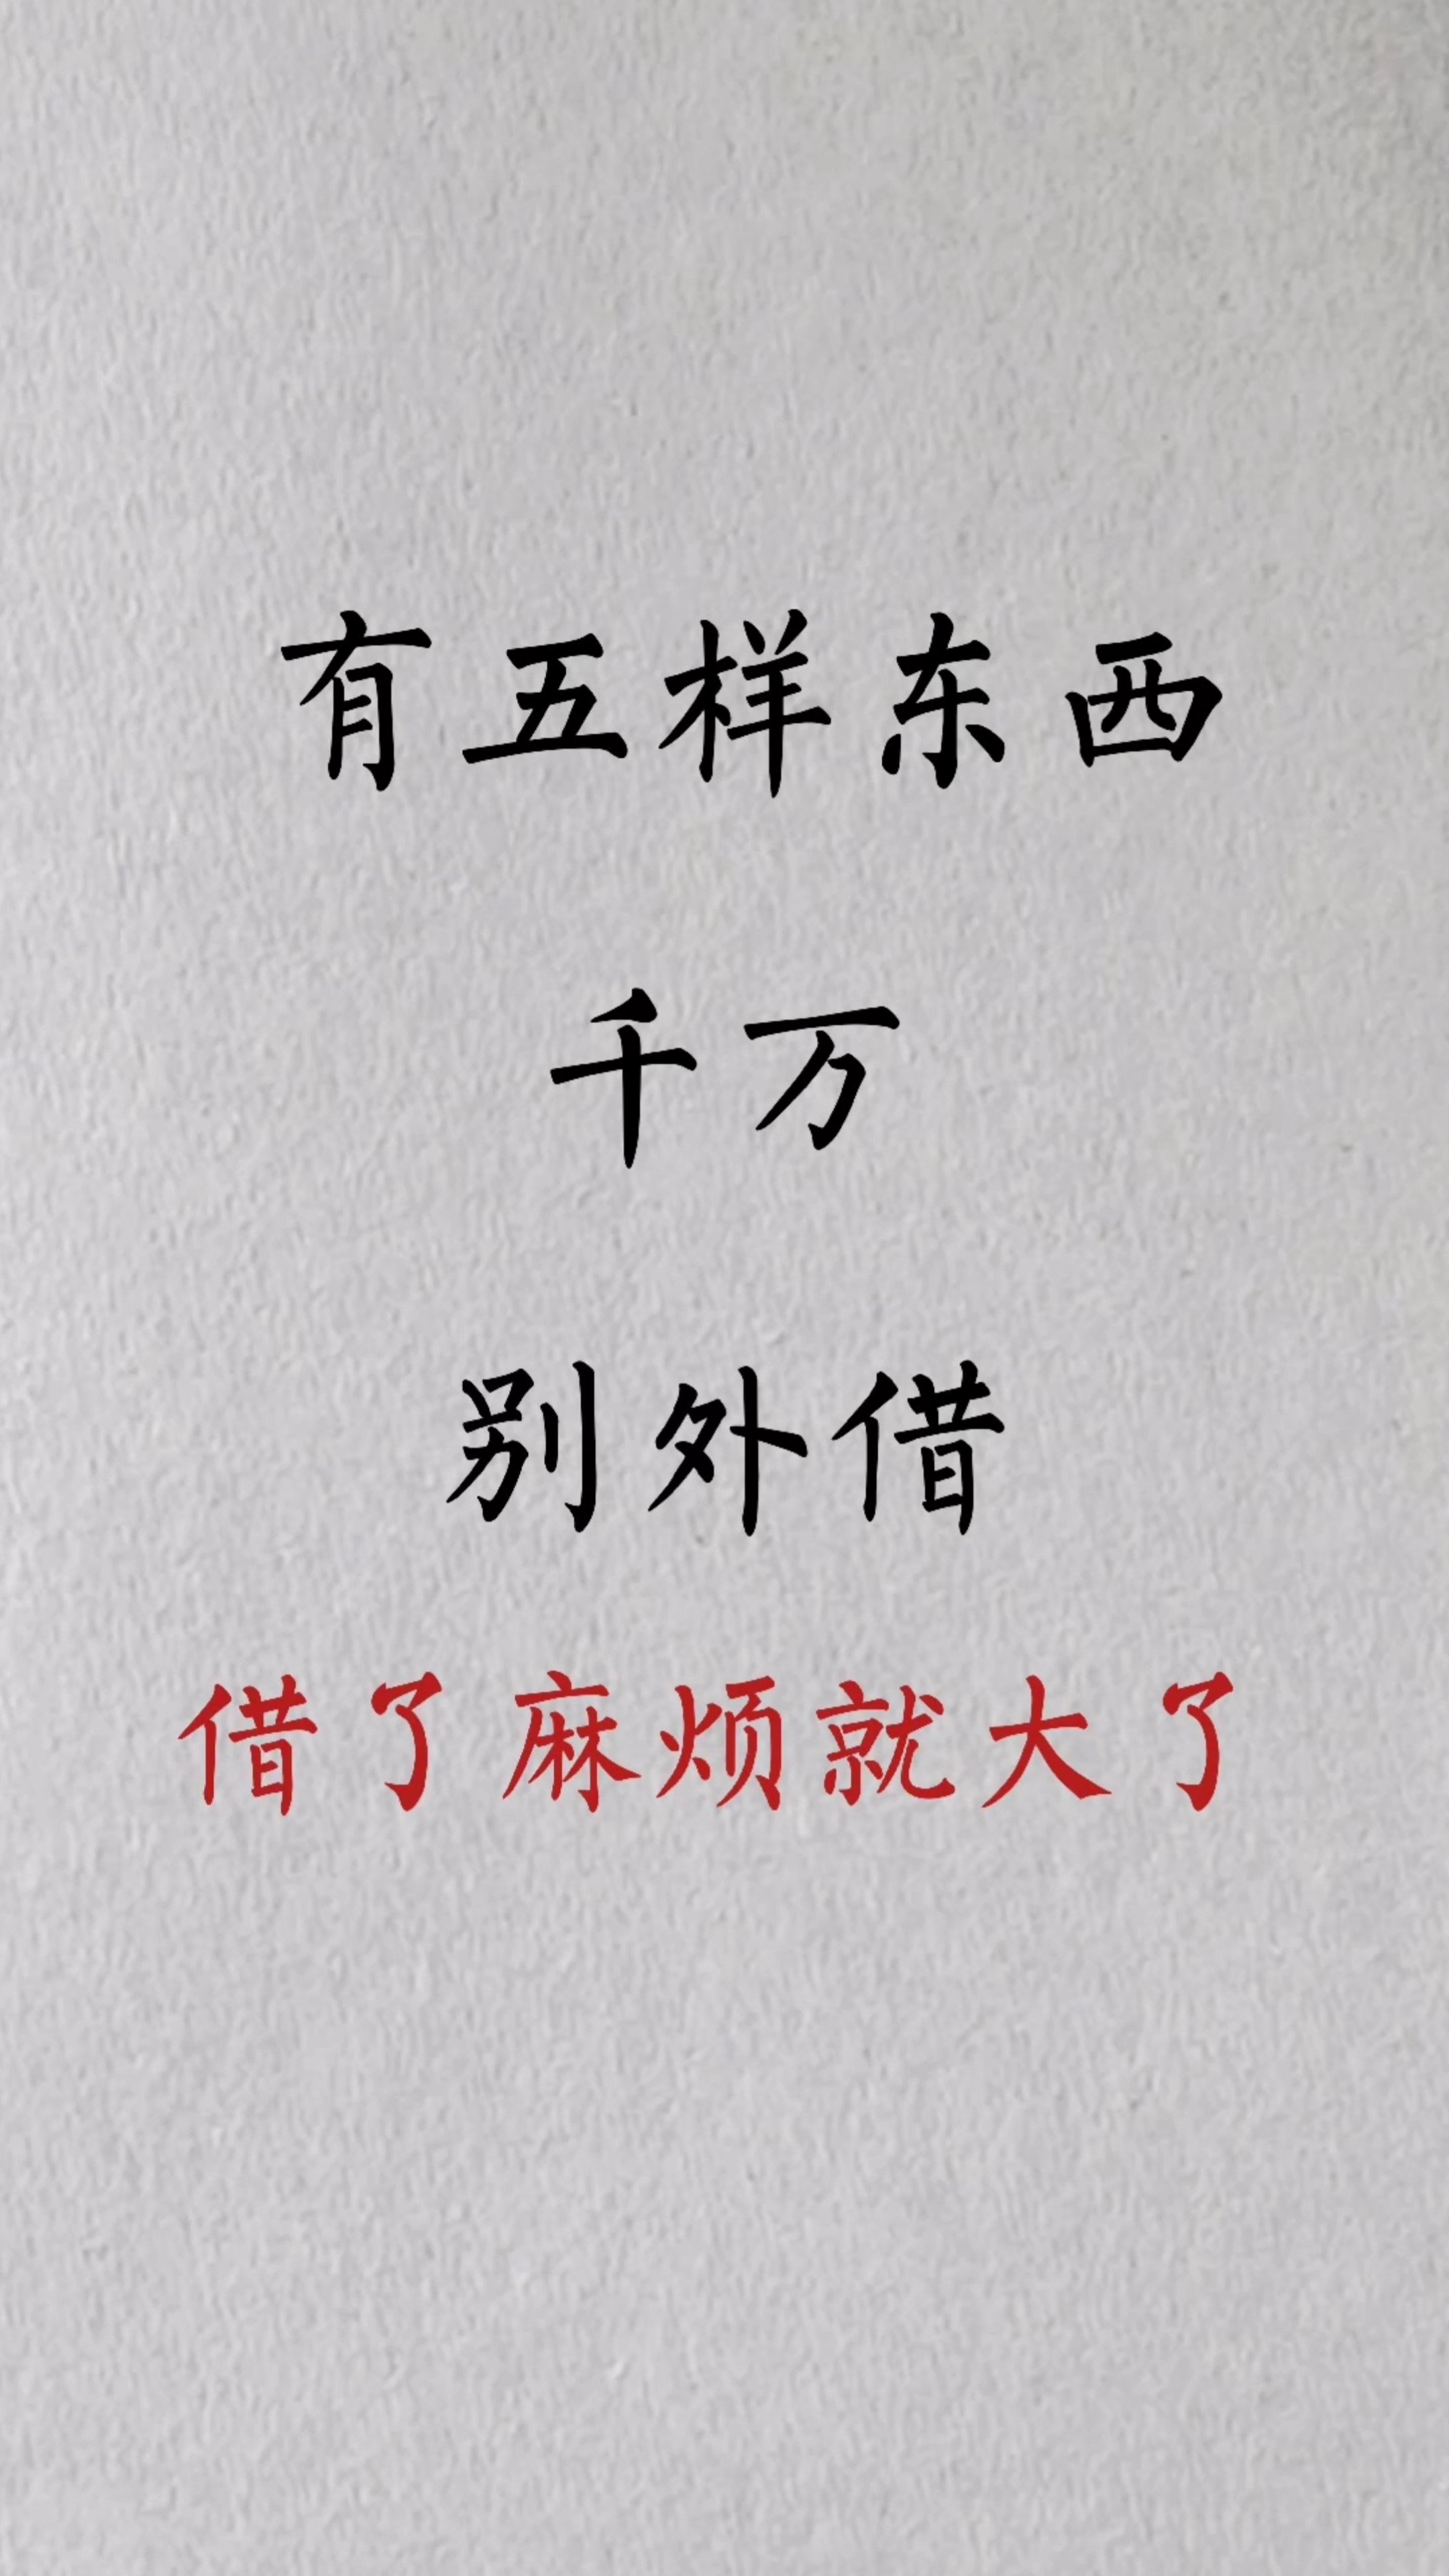 有五样东西
千万
别外借
借了麻烦就大了